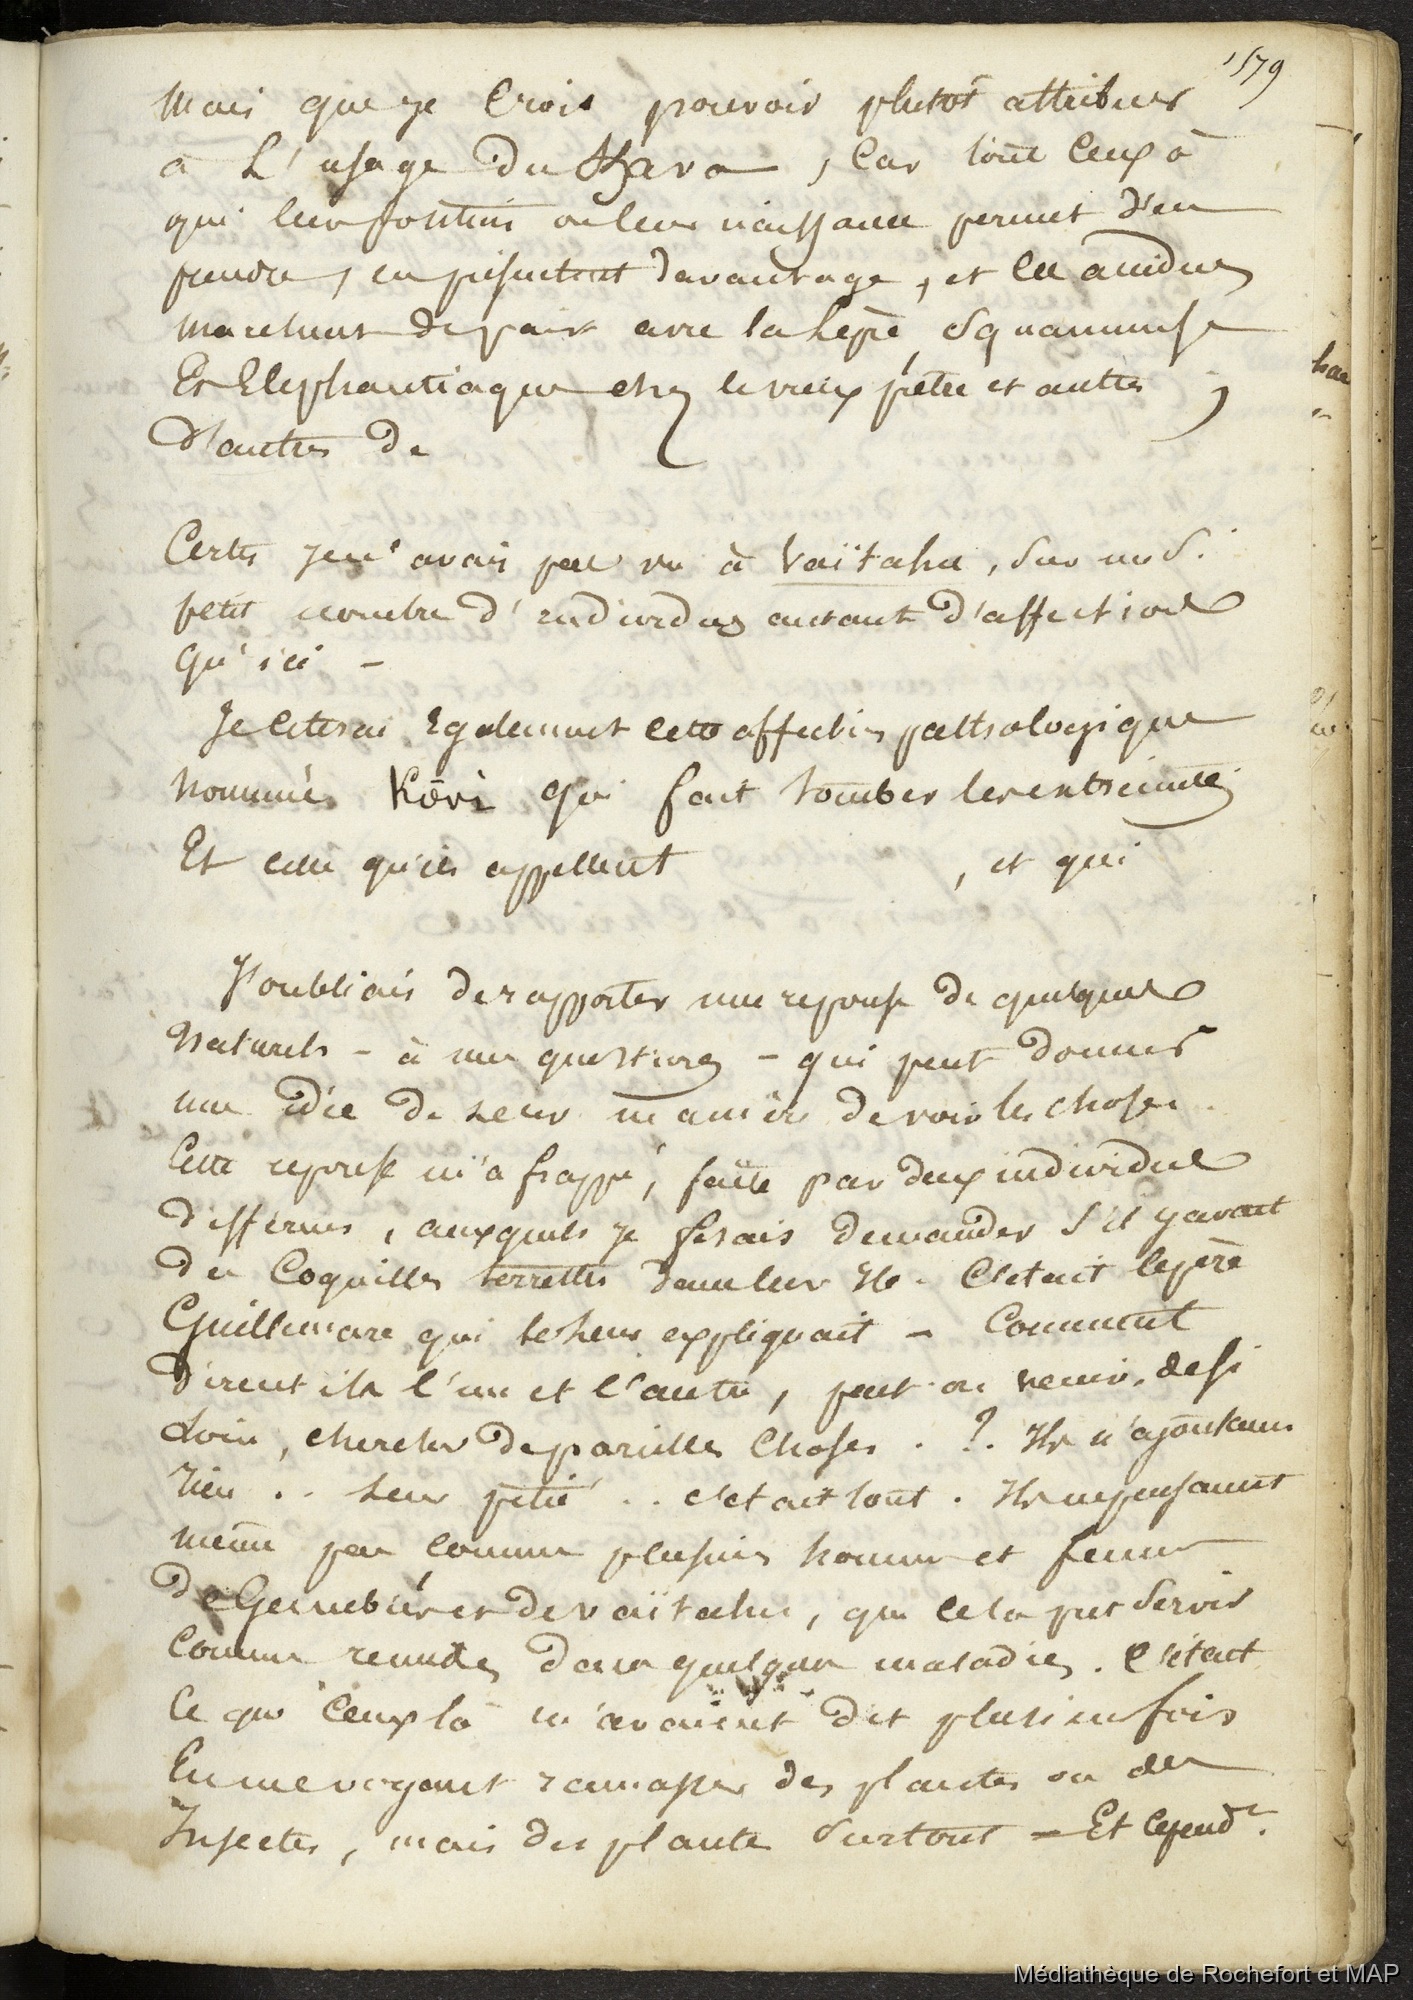 1579
Mais que je Crois pouvoir plutôt attribuer
a L'usage du Kava, Car tout Ceux à
qui leur position ou leur naissance permet d'en
prendre, en présentent davantage, et les
marchent de pair avec la Lèpre Squammeuse
Et Elephantiaque chez le vieux prêtre et autres ;
D'autres de
Certes je n'avais pas vu à Vaïtahu, Sur un S.
petit nombre d'individus autant d'affections
Qu'ici -
Je Citerai Egalement cette affection pathologique
Nommée Kōvi qui fait tomber les extrémités
Et celle qu'ils appellent , et qui
J'oubliais de rapporter une reponse de quelques
Naturels - à mes questions - qui peut donner
une idée de Leur maniere de voir les choses.
Cette reponse m'a frappé, faite par deux individus
differens, auxquels je fesais demander S'il y avait
des Coquilles terrestres dans leur Ile. C'était le père
Guillemare qui le leur expliquait - Comment
Dirent ils l'un et l'autre, peut on venir, de si
Loin, chercher de pareilles Choses. ?. Ils n'ajoutaient
Rien .. Leur pitié .. c'etait tout. Ils ne pensaient
même pas Comme plusieurs hommes et femmes
De Gambier et de vaïtahu, que cela put Servir
Comme remedes dans quelques maladies. C'était
Ce que Ceux là m'avaient dit plusieurs fois
En me voyant ramasser des plantes ou des
Insectes, mais des plantes Surtout - Et Cepend.t
Médiathèque de Rochefort et MAP